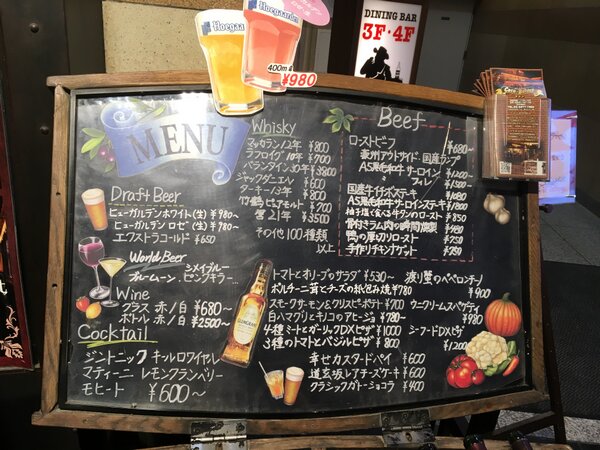 Hoegaarden
Hoegaarden
400ml
¥980
DINING BAR
3F・4F
MENU
Draft Beer
ヒューガルデンホワイト(生) ¥980~
ヒューガルデン ロゼ(生) ¥780~
エクストラコールド ¥650
World Beer
シメイブルー
ブルームーン、ピンクキラー…
Wine
グラス 赤/白 ¥680~
ボトル 赤/白 ¥2500~
Cocktail
ジントニック キールロワイヤル
マティーニ レモンクランベリー
モヒート ¥600~
Whisky
マッカラン12年 ¥800
ラフロイグ10年 ¥700
バランタイン30年 ¥3800
ジャックダニエル ¥600
ターキー13年 ¥800
竹鶴ピュアモルト ¥700
響21年 ¥3500
その他100種類
以上
Beef
ローストビーフ ¥680~
豪州アウトサイド・国産ランプ
A5黒毛和牛サーロイン ¥1200~
〃 フィレ ¥1500~
国産牛イチボステーキ ¥1080
A5黒毛和牛サーロインステーキ ¥1800
柚子塩で食べる牛タンのロースト ¥850
骨付きラム肉の瞬間燻製 ¥980
鴨の厚切リロースト ¥750
手作りチキンナゲット ¥750
トマトとオリーブのサラダ ¥530~
ポルチーニ茸とチーズの包み焼 ¥780
スモークサーモン&クリスピーポテト ¥700
白ハマグリとキノコのアヒージョ ¥780~
4種ミートとガーリックDXピザ ¥1000
3種のトマトとバジルピザ ¥800
渡り蟹のペペロンチーノ
¥900
ウニクリームスパゲティ
¥980
シーフードDXピザ
¥1200
幸せカスタードパイ ¥600
道玄坂レアチーズケーキ ¥600
クラシックガトーショコラ ¥400